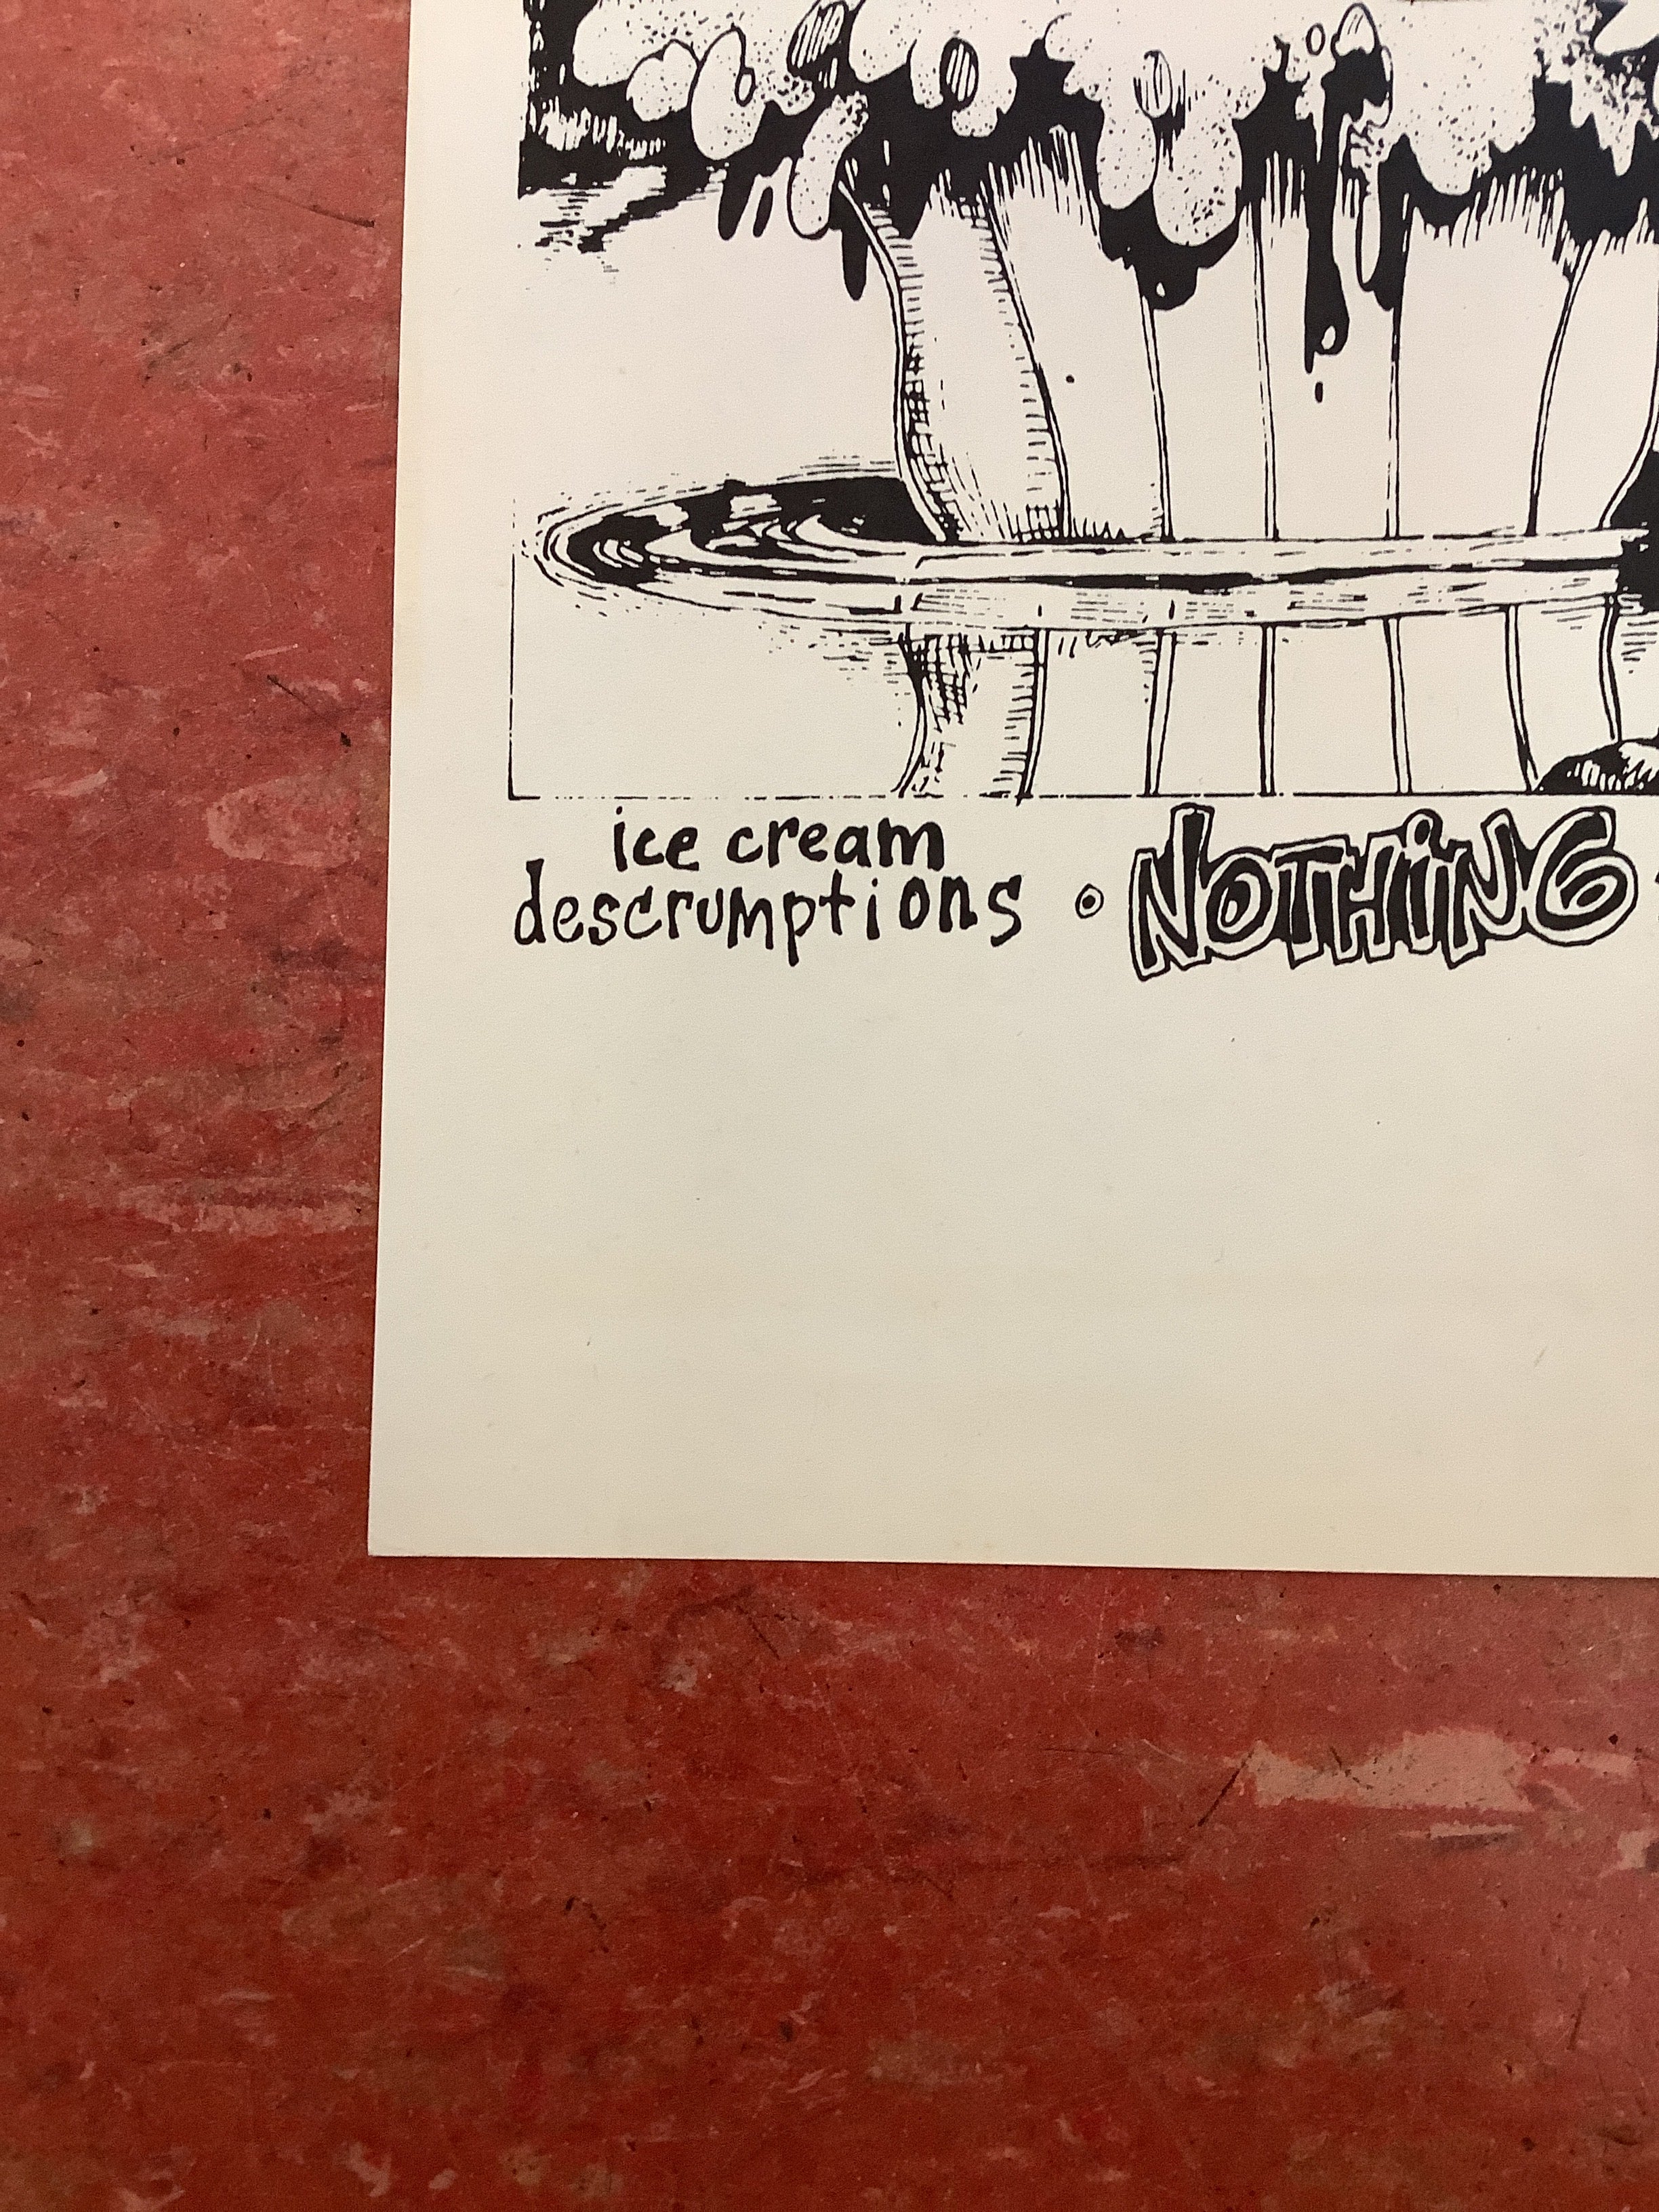 ice cream
descrumptions • NOTHiNG